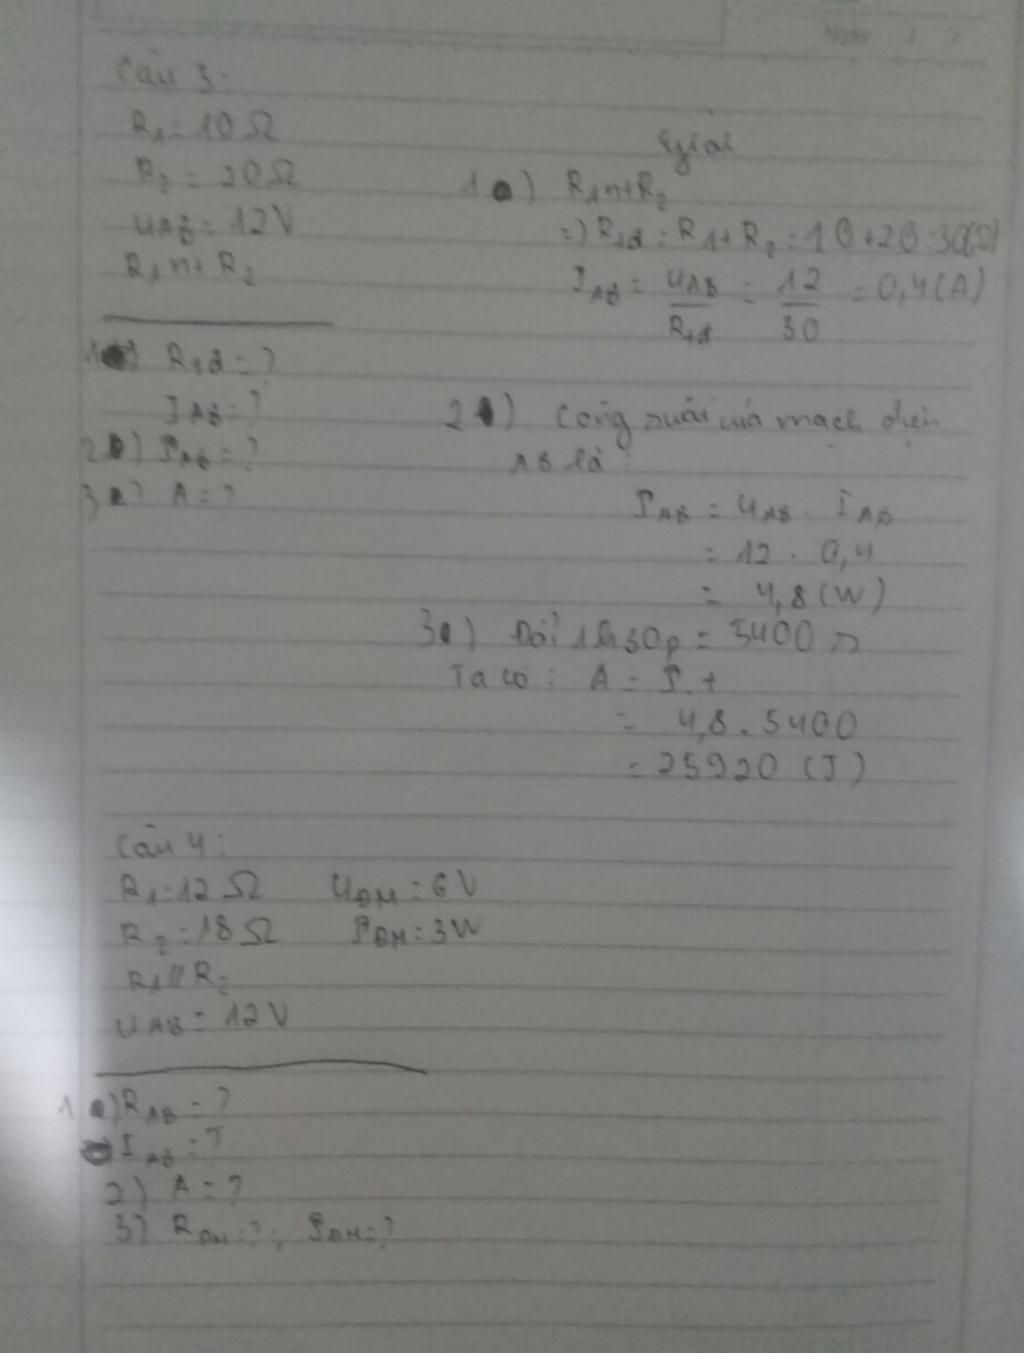 Ngày / /
Câu 3:
R₁ = 10Ω
R₂ = 20Ω
UAB = 12V
R₁ nt R₂
1) R₁₂ = ?
IAB = ?
2) PAB = ?
3) A = ?
Giải
1) R₁ nt R₂
=) R₁₂ = R₁ + R₂ = 10 + 20 = 30(Ω)
IAB = UAB/R₁₂ = 12/30 = 0,4(A)
2) Công suất của mạch điện
AB là:
PAB = UAB . IAB
= 12 . 0,4
= 4,8 (W)
3) Đổi 1h30p = 5400 s
Ta có: A = P.t
= 4,8 . 5400
= 25920 (J)
Câu 4:
R₁ = 12Ω UĐM = 6V
R₂ = 18Ω PĐM = 3W
R₁ // R₂
UAB = 12V
1) RAB = ?
IAB = ?
2) A = ?
3) RĐM = ? ; PĐM = ?